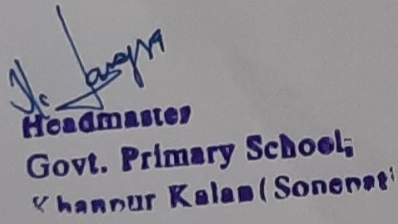 Headmaster
Govt. Primary School,
Khanpur Kalan (Sonepat